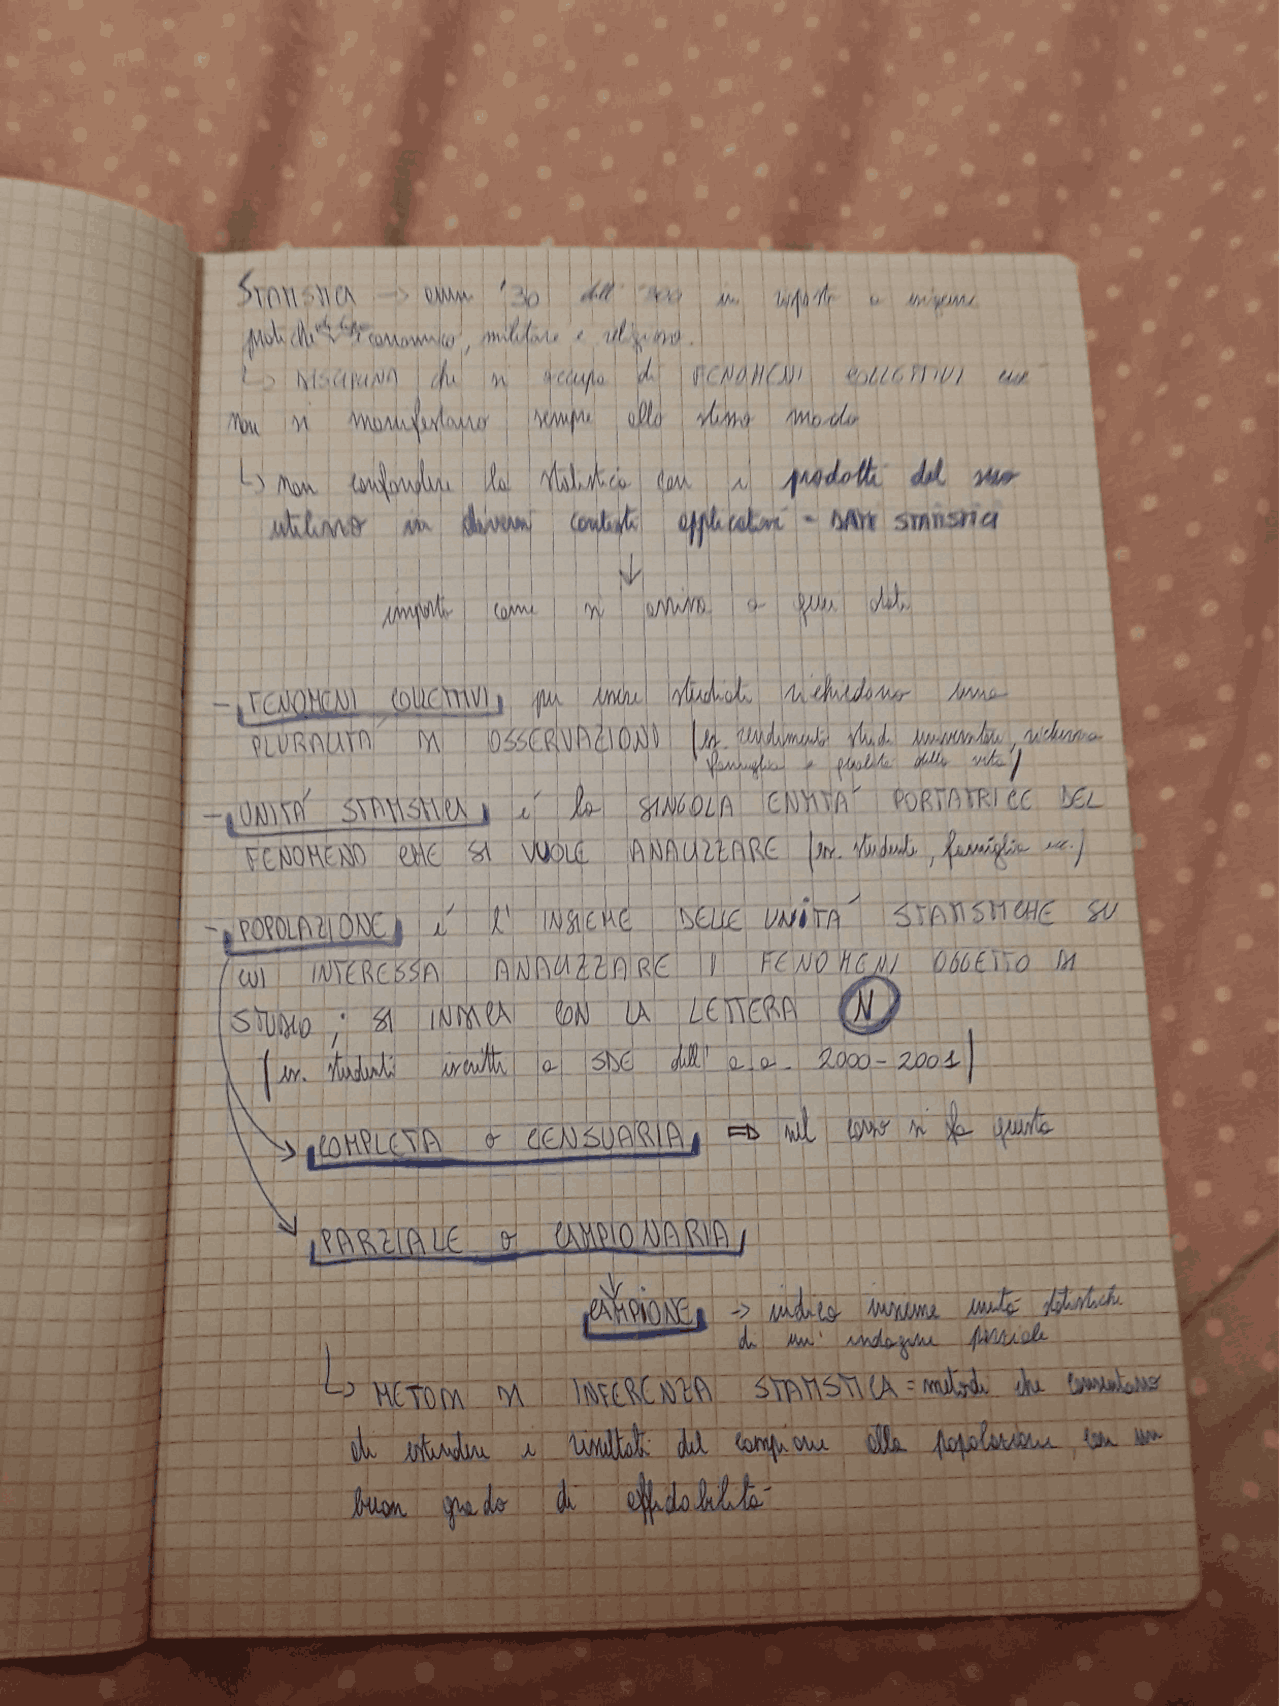 STATISTICA → anni '30 dell' '800 in risposta a esigenze
pratiche economico, militare e religioso.
↳ DISCIPLINA che si occupa di FENOMENI COLLETTIVI che
non si manifestano sempre allo stesso modo
↳ non confondere la statistica con i prodotti del suo
utilizzo in diversi contesti applicativi = DATI STATISTICI
↓
importa come si arriva a quei dati
- FENOMENI COLLETTIVI per essere studiati richiedono una
PLURALITÀ DI OSSERVAZIONI (es. rendimento studi universitari, ricchezza
famiglia e qualità della vita)
- UNITÀ STATISTICA è la SINGOLA ENTITÀ PORTATRICE DEL
FENOMENO CHE SI VUOLE ANALIZZARE (es. studente, famiglia ecc.)
- POPOLAZIONE è l' INSIEME DELLE UNITÀ STATISTICHE SU
CUI INTERESSA ANALIZZARE I FENOMENI OGGETTO DI
STUDIO ; SI INDICA CON LA LETTERA N
(es. studenti iscritti a SDE dell' a.a. 2000-2001)
COMPLETA o CENSUARIA ⇒ nel corso si fa questa
PARZIALE o CAMPIONARIA
↓
CAMPIONE → indica insieme unità statistiche
di un' indagine parziale
↳ METODI DI INFERENZA STATISTICA = metodi che consentano
di estendere i risultati del campione alla popolazione, con un
buon grado di affidabilità